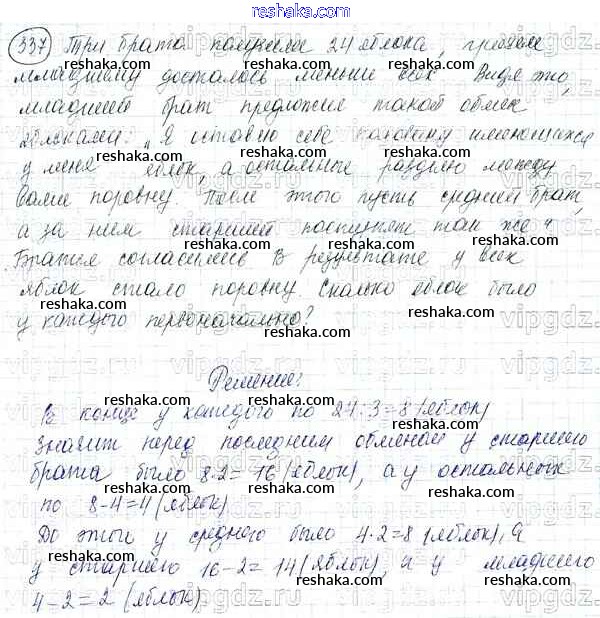 reshaka.com
337 Три брата получили 24 яблока, причём
младшему досталось меньше всех. Видя это,
младший брат предложил такой обмен
яблоками: „Я оставлю себе половину имеющихся
у меня яблок, а остальные разделю между
вами поровну. После этого пусть средний брат,
а за ним старший поступят так же"
Братья согласились. В результате у всех
яблок стало поровну. Сколько яблок было
у каждого первоначально?
Решение:
В конце у каждого по 24:3=8 (яблок)
Значит перед последним обменом у старшего
брата было 8·2=16 (яблок), а у остальных
по 8-4=4 (яблок)
До этого у среднего было 4·2=8 (яблок), а
у старшего 16-2=14 (яблок), а у младшего
4-2=2 (яблок)